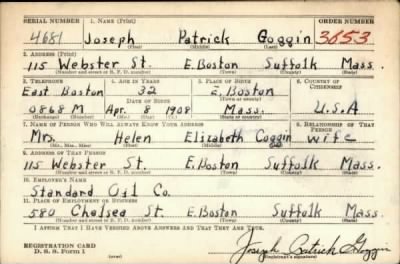 SERIAL NUMBER 1. NAME (Print) ORDER NUMBER
4681 Joseph Patrick Goggin 3053
(First) (Middle) (Last)
2. ADDRESS (Print)
115 Webster St. E.Boston Suffolk Mass.
(Number and street or R. F. D. number) (Town) (County) (State)
3. TELEPHONE 4. AGE IN YEARS 5. PLACE OF BIRTH 6. COUNTRY OF CITIZENSHIP
East Boston 32 E. Boston
DATE OF BIRTH (Town or county)
0868 M Apr. 8 1908 Mass. U.S.A
(Exchange) (Number) (Mo.) (Day) (Yr.) (State or country)
7. NAME OF PERSON WHO WILL ALWAYS KNOW YOUR ADDRESS 8. RELATIONSHIP OF THAT PERSON
Mrs. Helen Elizabeth Goggin Wife
(Mr., Mrs., Miss) (First) (Middle) (Last)
9. ADDRESS OF THAT PERSON
115 Webster St. E.Boston Suffolk Mass.
(Number and street or R. F. D. number) (Town) (County) (State)
10. EMPLOYER'S NAME
Standard Oil Co.
11. PLACE OF EMPLOYMENT OR BUSINESS
580 Chelsea St. E.Boston Suffolk Mass.
(Number and street or R. F. D. number) (Town) (County) (State)
I AFFIRM THAT I HAVE VERIFIED ABOVE ANSWERS AND THAT THEY ARE TRUE.
REGISTRATION CARD
D. S. S. Form 1 (over) Joseph Patrick Goggin
(Registrant's signature)